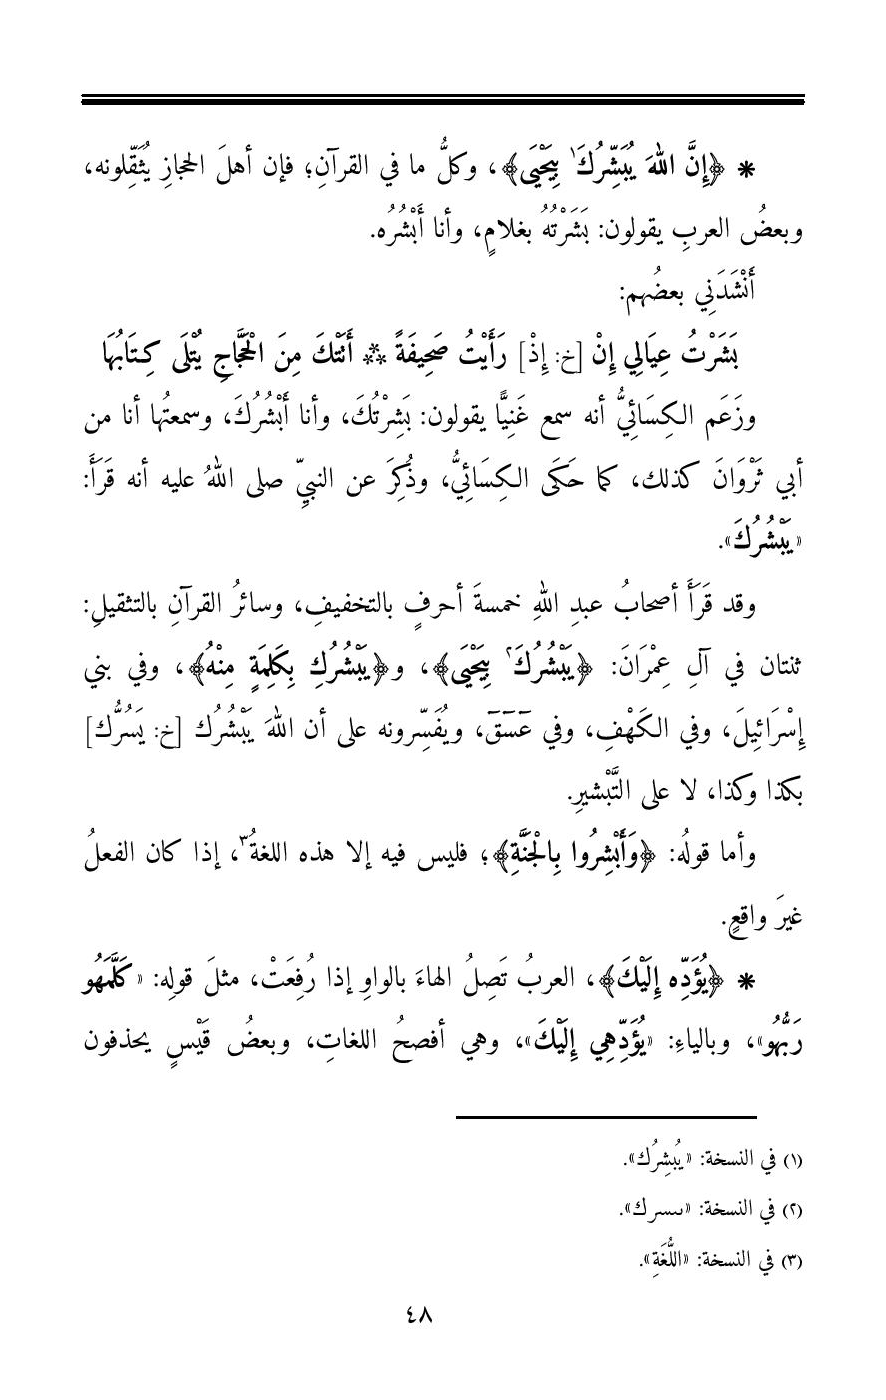 * ﴿إِنَّ اللهَ يُبَشِّرُكَ١ بِيَحْيَى﴾، وكلُّ ما في القرآنِ؛ فإن أهلَ الحجازِ يُثَقِّلونه،
وبعضُ العربِ يقولون: بَشَرْتُهُ بغلامٍ، وأنا أَبْشُرُه.
أَنْشَدَنِي بعضُهم:
بَشَرْتُ عِيَالِي إِنْ [خ: إِذْ] رَأَيْتُ صَحِيفَةً ** أَتَتْكَ مِنَ الْحَجَّاجِ يُتْلَى كِتَابُهَا
وزَعَم الكِسَائِيُّ أنه سمع غَنِيًّا يقولون: بَشِرْتُكَ، وأنا أَبْشُرُكَ، وسمعتُها أنا من
أبي ثَرْوَانَ كذلك، كما حَكَى الكِسَائِيُّ، وذُكِرَ عن النبيِّ صلى اللهُ عليه أنه قَرَأَ:
«يَبْشُرُكَ».
وقد قَرَأَ أصحابُ عبدِ اللهِ خمسةَ أحرفٍ بالتخفيفِ، وسائرُ القرآنِ بالتثقيلِ:
ثنتان في آلِ عِمْرَانَ: ﴿يَبْشُرُكَ٢ بِيَحْيَى﴾، و﴿يَبْشُرُكِ بِكَلِمَةٍ مِنْهُ﴾، وفي بني
إِسْرَائِيلَ، وفي الكَهْفِ، وفي عٓسٓقٓ، ويُفَسِّرونه على أن اللهَ يَبْشُرُك [خ: يَسُرُّك]
بكذا وكذا، لا على التَّبْشيرِ.
وأما قولُه: ﴿وَأَبْشِرُوا بِالْجَنَّةِ﴾؛ فليس فيه إلا هذه اللغةُ٣، إذا كان الفعلُ
غيرَ واقعٍ.
* ﴿يُؤَدِّه إِلَيْكَ﴾، العربُ تَصِلُ الهاءَ بالواوِ إذا رُفِعَتْ، مثلَ قولِه: «كَلَّمَهُو
رَبُّهُو»، وبالياءِ: «يُؤَدِّهِي إِلَيْكَ»، وهي أفصحُ اللغاتِ، وبعضُ قَيْسٍ يحذفون
(١) في النسخة: «يُبْشِرُك».
(٢) في النسخة: «ٮٮسرك».
(٣) في النسخة: «اللُّغَةِ».
٤٨